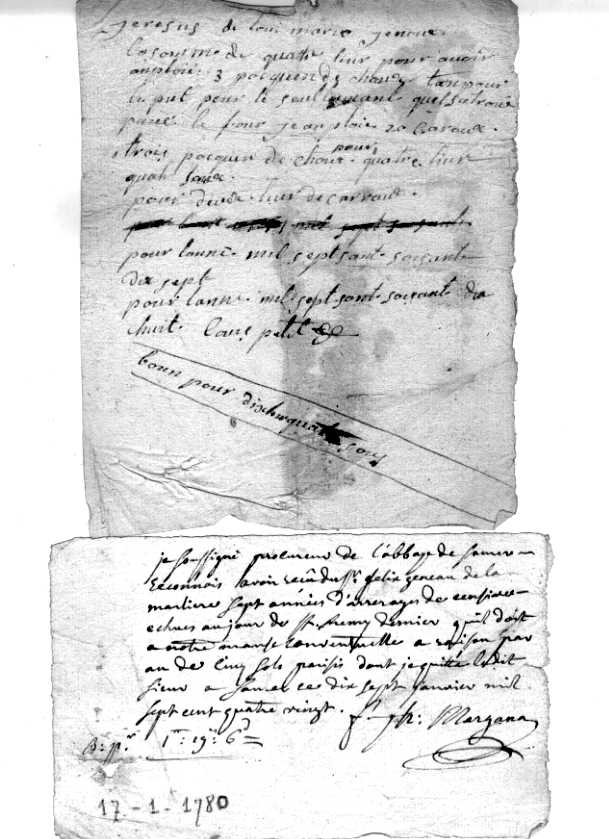 jeresus de loui marie jenau
la somme de quatre liur pour auoir
anploié 3 pacquen de choux tanpour
le put pour le seul quel satroue
paree le four jean ploie 20 caraux
trois pacquen de choux pour quatre liur
quatre sous
pour deux liur de carraux
pour lanne mil sept sant soisant
dix sept
pour lanne mil sept sant soisant dix
chuit. Louis petit
bonn pour dixhuquatre sous
je soussigné procureur de l'abbaye de samer
reconnois avoir recû du Sr. felix geneau de la
marliere sept années d'arrerages de censives
echues au jour de St. Remy dernier qu'il doit
a notre manse conventuelle a raison par
an de cinq sols parisis dont je quitte ledit
sieur a samer ce dix sept janvier mil
sept cent quatre vingt. f. jh: Margana
B: pr. 1tt: 19s: 6d
17-1-1780